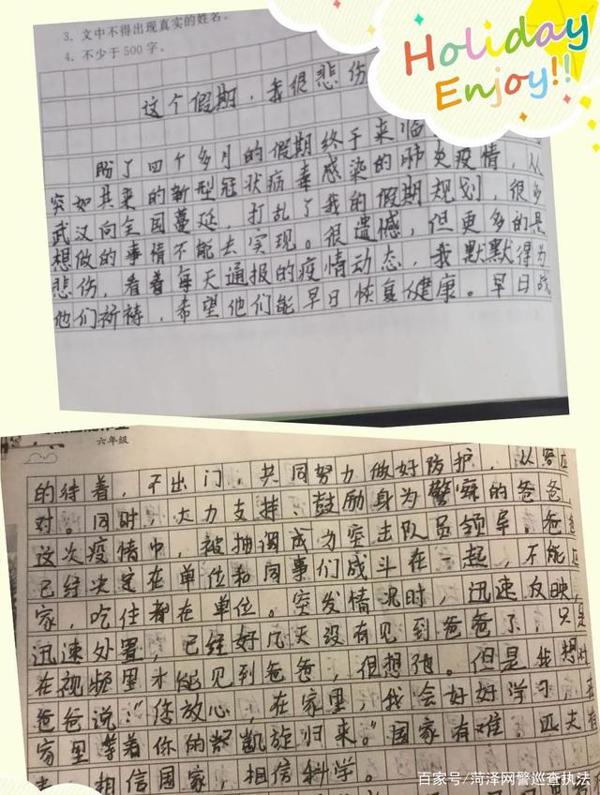 3. 文中不得出现真实的姓名。
4. 不少于500字。
Holiday
Enjoy!!
这个假期，我很悲伤
盼了四个多月的假期终于来临
突如其来的新型冠状病毒感染的肺炎疫情，从
武汉向全国蔓延，打乱了我的假期规划，很多
想做的事情不能去实现。很遗憾，但更多的是
悲伤，看着每天通报的疫情动态，我默默得为
他们祈祷，希望他们能早日恢复健康。早日战
六年级
的待着，不出门，共同努力做好防护，从容应
对。同时，大力支持、鼓励身为警察的爸爸，
这次疫情中，被抽调成为突击队员领导。爸爸
已经决定在单位和同事们战斗在一起，不能
家，吃住都在单位。突发情况时，迅速反映，
迅速处置，已经好几天没有见到爸爸了，只是
在视频里才能见到爸爸，很想他。但是我想对
爸爸说："您放心，在家里，我会好好学习
家里等着你的凯旋归来。"国家有难，匹夫有
相信国家，相信科学。
百家号/菏泽网警巡查执法